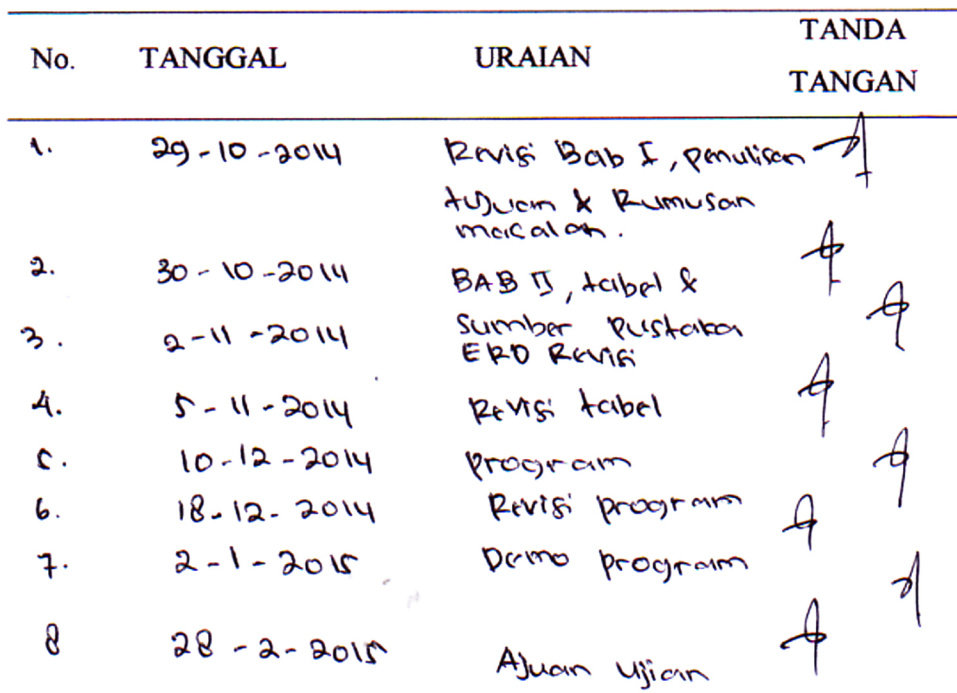 No. TANGGAL URAIAN TANDA TANGAN
1. 29-10-2014 Revisi Bab I, penulisan
tujuan & Rumusan
masalah.
2. 30-10-2014 BAB II, tabel &
sumber pustaka
3. 2-11-2014 ERD Revisi
4. 5-11-2014 Revisi tabel
5. 10-12-2014 program
6. 18-12-2014 Revisi program
7. 2-1-2015 Demo program
8 28-2-2015 Ajuan Ujian